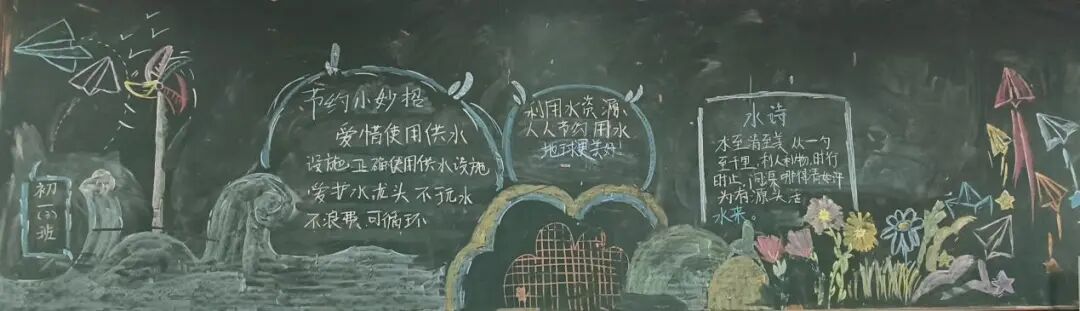 初一(3)班
节约小妙招
爱惜使用供水
设施正确使用供水设施
爱护水龙头 不玩水
不浪费可循环
利用水资源、
人人节约用水
地球更美好!
水诗
水至清至美从一勺
至千里,利人利物,时行
时止,问渠哪得清如许
为有源头活
水来。